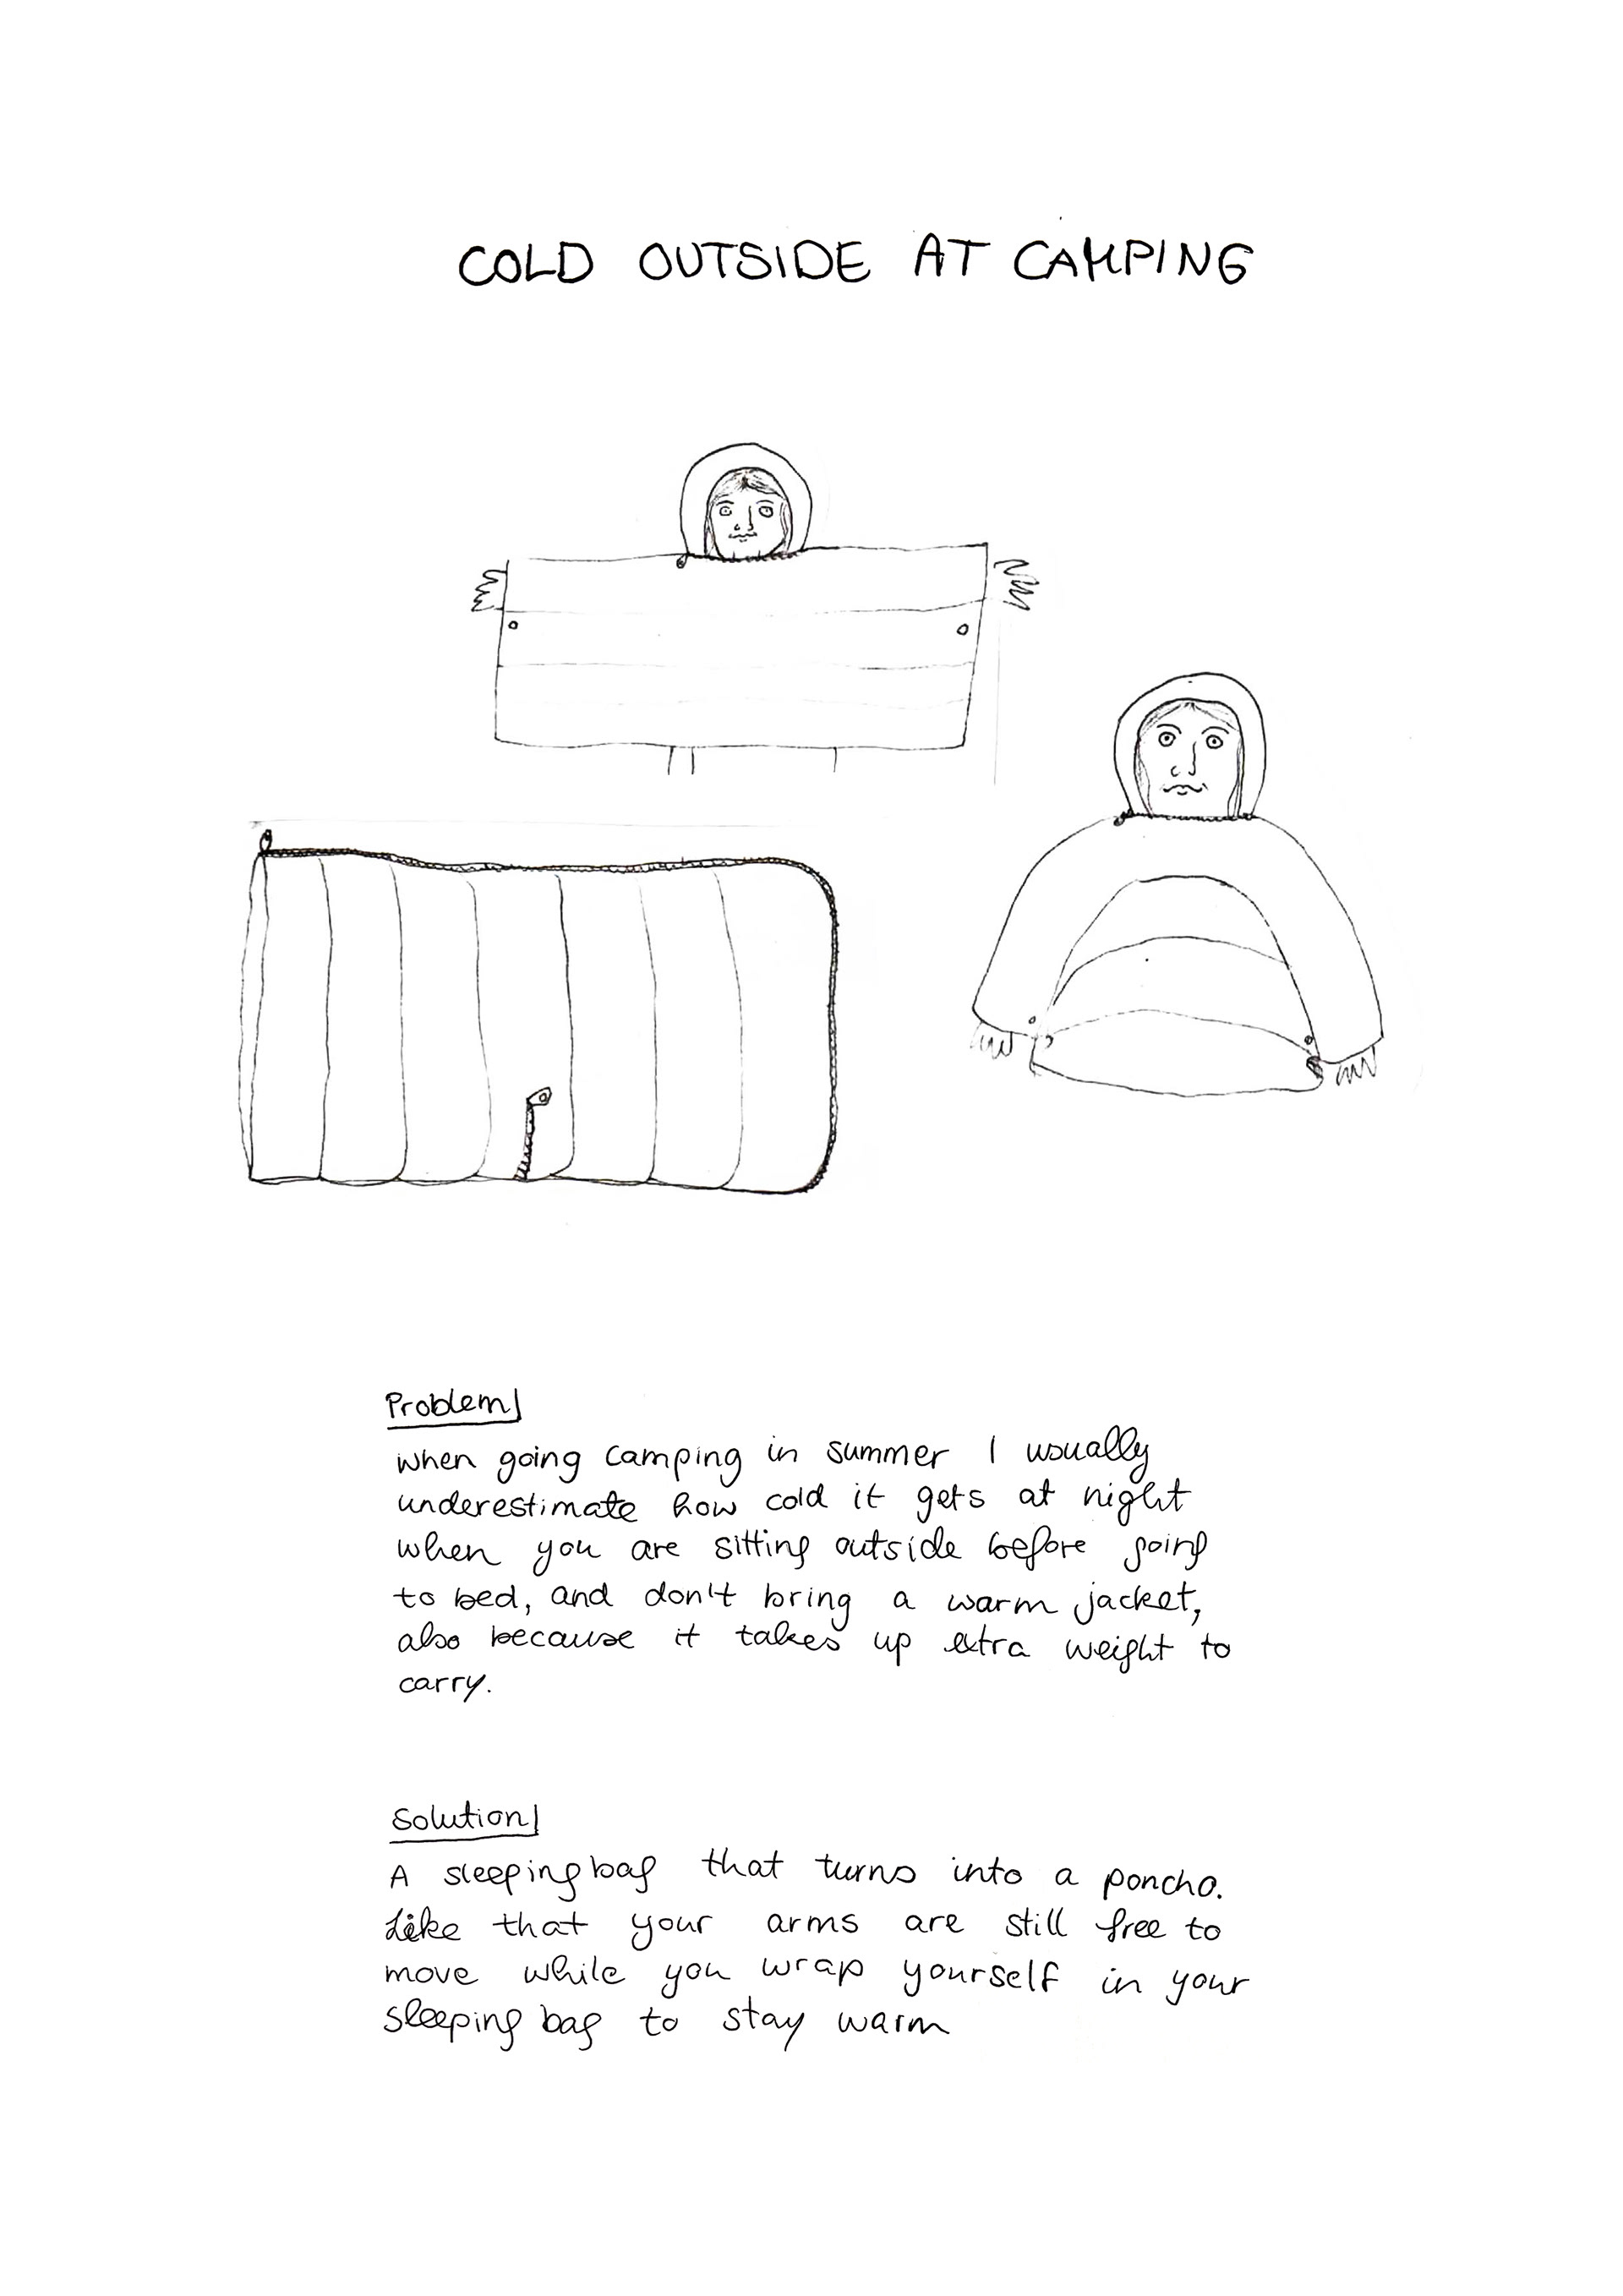 COLD OUTSIDE AT CAMPING
Problem
when going camping in summer I usually
underestimate how cold it gets at night
when you are sitting outside before going
to bed, and don't bring a warm jacket,
also because it takes up extra weight to
carry.
Solution
A sleepingbag that turns into a poncho.
Like that your arms are still free to
move while you wrap yourself in your
sleeping bag to stay warm